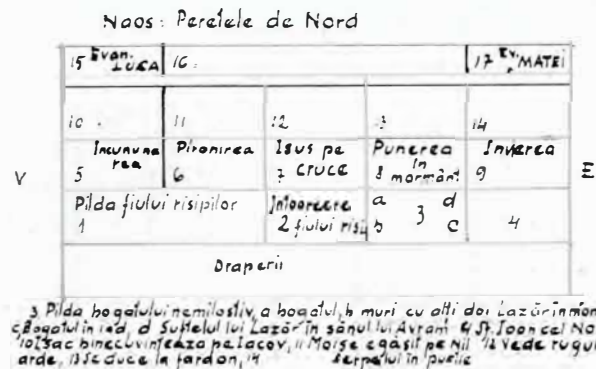 Naos: Peretele de Nord
15 Evan. LUCA 16. 17 Ev. MATEI
10. 11 12 13 14
Incununarea Pironirea Isus pe cruce Punerea în mormânt Invierea
5 6 7 8 9
V E
Pilda fiului risipitor Intoarcere fiului risi a d
1 2 b 3 c 4
Draperii
3 Pilda bogatului nemilostiv, a bogatul, b muri cu alți doi Lazăr în mor
c Bogatul în iad, d Sufletul lui Lazăr în sânul lui Avram 4 Sf. Ioan cel No
10 Isac binecuvintează pe Iacov, 11 Moise e găsit pe Nil 12 Vede rugu
arde, 13 Se duce la fardon, 14 serpelui în pustie